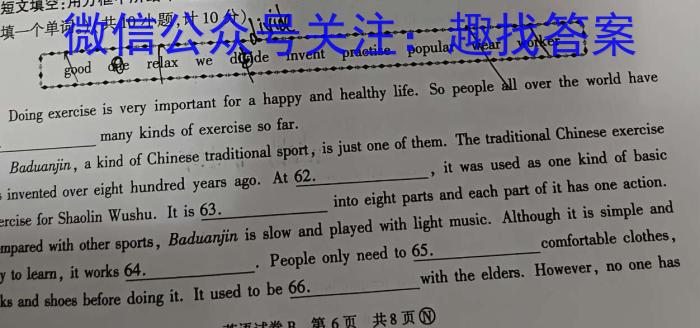 短文填空:用方框中所给
填一个单词 共10小题,计10分)
微信公众号关注:趣找答案
good one relax we divide invent practise popular wear worker
Doing exercise is very important for a happy and healthy life. So people all over the world have
many kinds of exercise so far.
Baduanjin, a kind of Chinese traditional sport, is just one of them. The traditional Chinese exercise
invented over eight hundred years ago. At 62. , it was used as one kind of basic
ercise for Shaolin Wushu. It is 63. into eight parts and each part of it has one action.
mpared with other sports, Baduanjin is slow and played with light music. Although it is simple and
y to learn, it works 64. . People only need to 65. comfortable clothes,
ks and shoes before doing it. It used to be 66. with the elders. However, no one has
第6页 共8页 Ⓝ